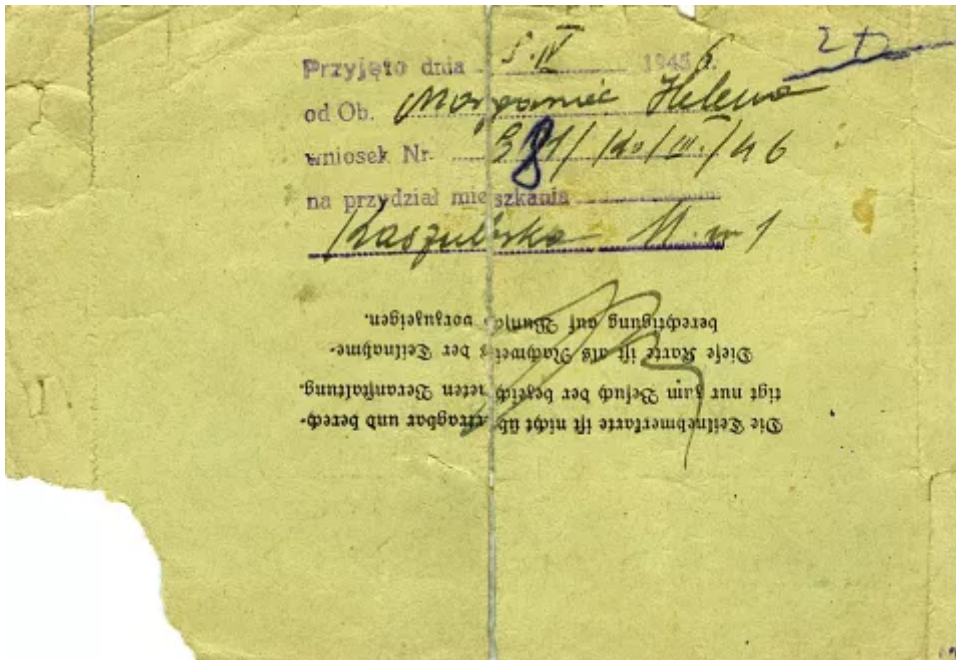 Przyjęto dnia 5.IV 1945 6.
od Ob. Helena
wniosek Nr. 381/Ko/III./46
na przydział mieszkania
Kaszubska 11. m 1
Die Teilnehmerkarte ist nicht übertragbar und berech-
tigt nur zum Besuch der bezeichneten Veranstaltung.
Diese Karte ist als Nachweis der Teilnahme-
berechtigung auf Wunsch vorzuzeigen.